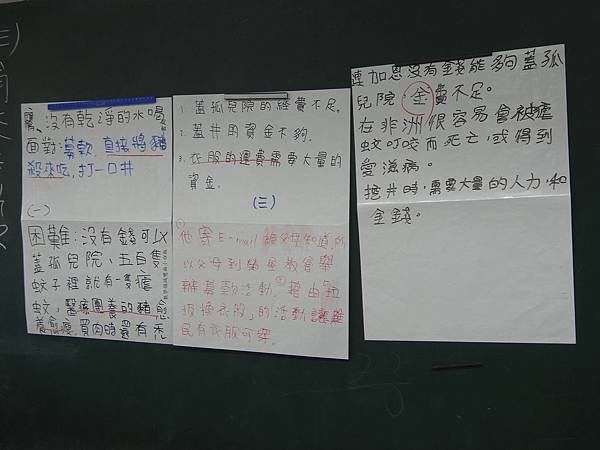 窮、沒有乾淨的水喝
面對:募款,直接將豬
殺來吃,打一口井
(一)
困難:沒有錢可以
蓋孤兒院、五百隻
蚊子裡就有一隻瘧
蚊,醫療團養的豬愈
養愈瘦,買肉時還有禿
1. 蓋孤兒院的經費不足。
2. 蓋井用資金不夠.
3. 衣服的運費需要大量的
資金.
(三)
他寄E-mail 父母知道,所
以父母到 教會舉
辦募款活動,藉由
換衣服」的活動讓難
民有衣服可穿.
連加恩沒有錢能夠蓋孤
兒院:金費不足。
在非洲很容易會被瘧
蚊叮咬而死亡,或得到
愛滋病。
挖井時,需要大量的人力,和
金錢。